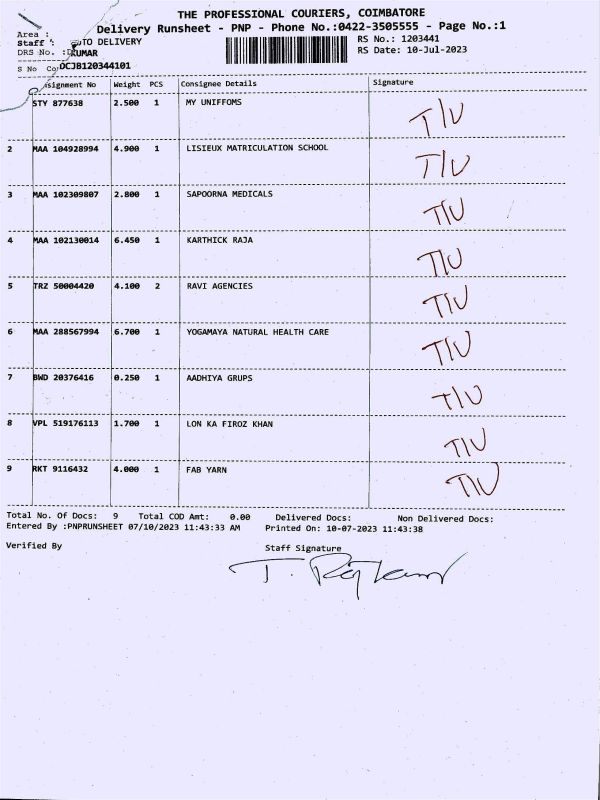 THE PROFESSIONAL COURIERS, COIMBATORE
Delivery Runsheet - PNP - Phone No.:0422-3505555 - Page No.:1
Area :
Staff : TO DELIVERY
RS No.: 1203441
DRS No. : KUMAR
RS Date: 10-Jul-2023
S No Co DCJB120344101
signment No Weight PCS Consignee Details Signature
STY 877638 2.500 1 MY UNIFFOMS T/U
2 MAA 104928994 4.900 1 LISIEUX MATRICULATION SCHOOL T/U
3 MAA 102309807 2.800 1 SAPOORNA MEDICALS T/U
4 MAA 102130014 6.450 1 KARTHICK RAJA T/U
5 TRZ 50004420 4.100 2 RAVI AGENCIES T/U
6 MAA 288567994 6.700 1 YOGAMAYA NATURAL HEALTH CARE T/U
7 BWD 20376416 0.250 1 AADHIYA GRUPS T/U
8 VPL 519176113 1.700 1 LON KA FIROZ KHAN T/U
9 RKT 9116432 4.000 1 FAB YARN T/U
Total No. Of Docs: 9 Total COD Amt: 0.00 Delivered Docs: Non Delivered Docs:
Entered By :PNPRUNSHEET 07/10/2023 11:43:33 AM Printed On: 10-07-2023 11:43:38
Verified By Staff Signature